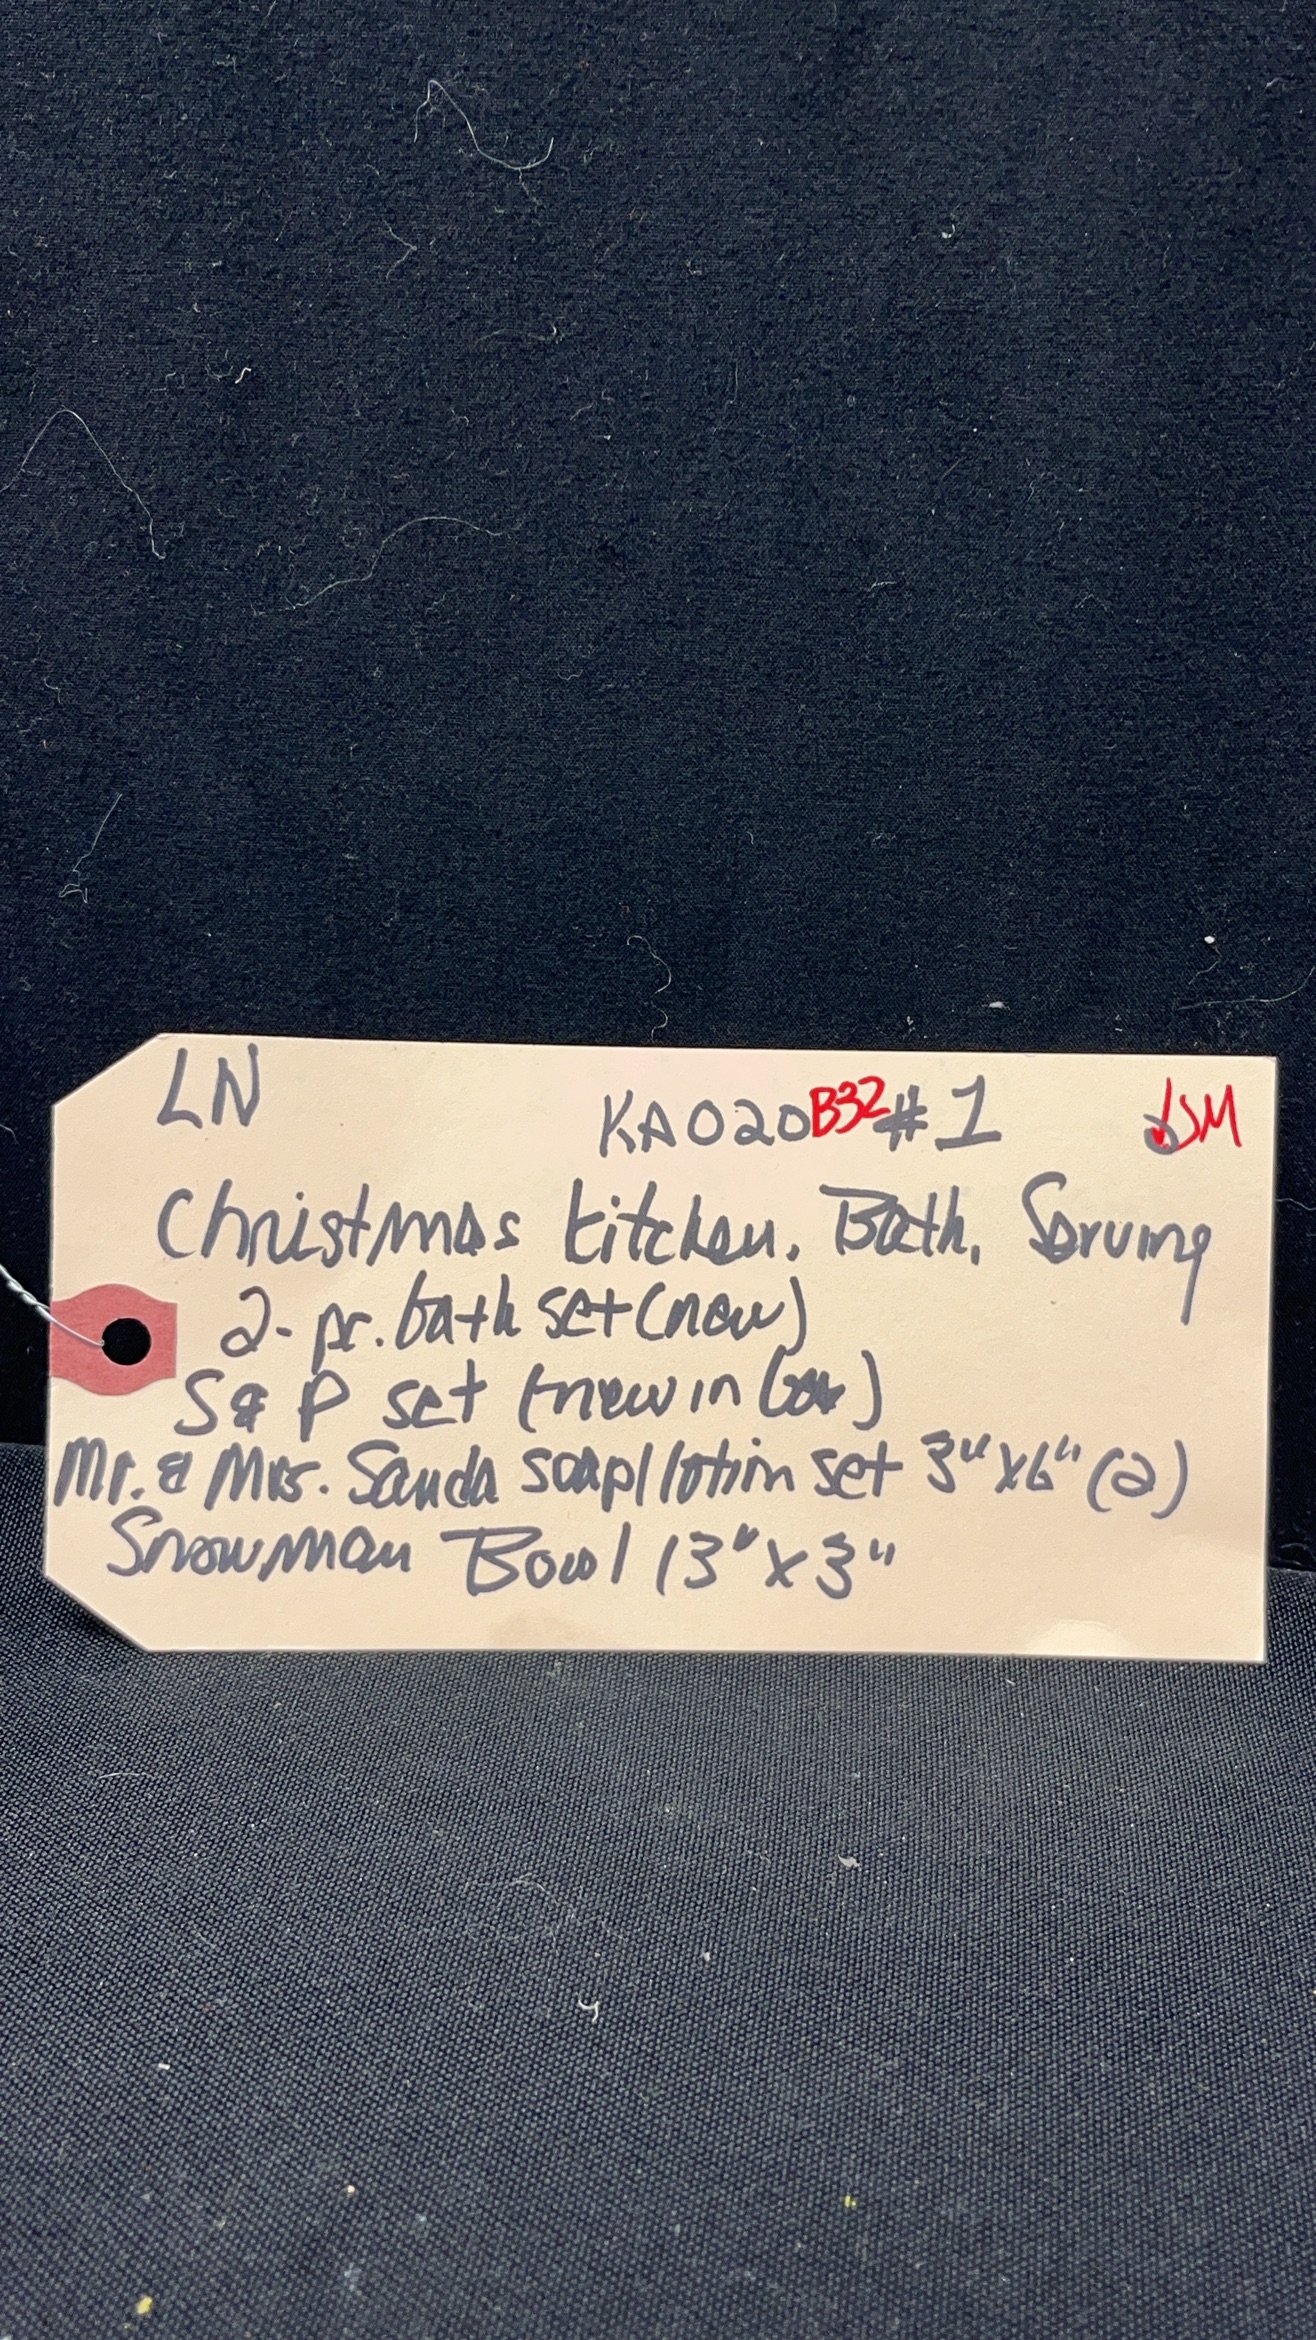 LN
KA020 B32 # 1 JSM
Christmas Kitchen, Bath, Serving
2- pc. bath set (new)
S & P set (new in box)
Mr. & Mrs. Santa soap/lotion set 3" x 6" (2)
Snowman Bowl 13" x 3"